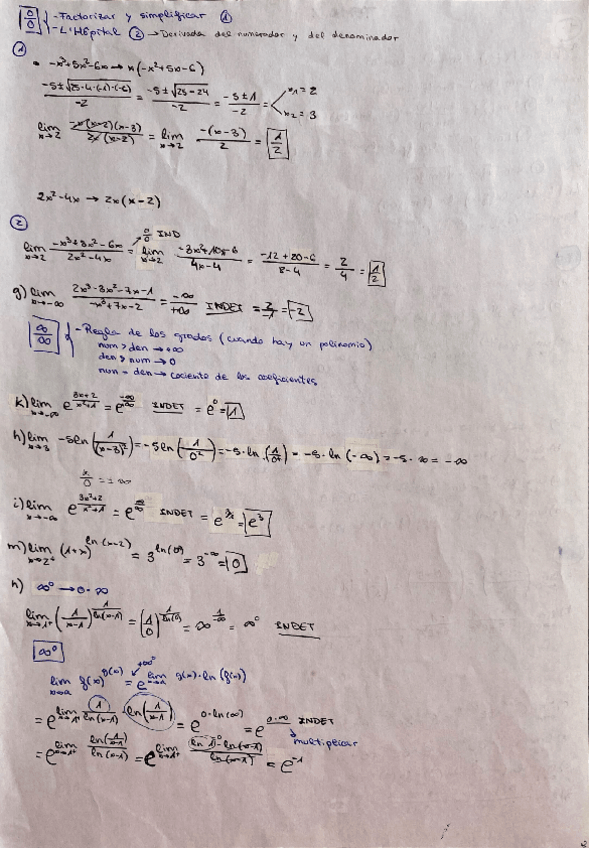 0/0 { - Factorizar y simplificar ①
- L'Hôpital ② → Derivada del numerador y del denominador
①
• -x³+5x²-6x → x(-x²+5x-6)
(-5±√(25-4·(-1)·(-6)))/(-2) = (-5±√(25-24))/(-2) = (-5±1)/(-2) = < x₁=2 x₂=3
lim x→2 (-x(x-2)(x-3))/(2x(x-2)) = lim x→2 (-(x-3))/2 = 1/2
2x²-4x → 2x(x-2)
②
0/0 IND
lim x→2 (-x³+5x²-6x)/(2x²-4x) = lim x→2 (-3x²+10x-6)/(4x-4) = (-12+20-6)/(8-4) = 2/4 = 1/2
g) lim x→-∞ (2x³-3x²-7x-1)/(-x³+7x-2) = -∞/+∞ INDET = 2/-1 = -2
∞/∞ { - Regla de los grados (cuando hay un polinomio)
num > den → +∞
den > num → 0
num = den → cociente de los coeficientes
k) lim x→-∞ e^((3x+2)/(x²+1)) = e^(-∞/∞) INDET = e⁰ = 1
h) lim x→3 -5ln(1/(x-3)²) = -5ln(1/0²) = -5·ln(1/0⁺) = -5·ln(-∞) = -5·∞ = -∞
k/0 = ±∞
i) lim x→-∞ e^((3x²+2)/(x²+1)) = e^(∞/∞) INDET = e^(3/1) = e³
m) lim x→2⁺ (1+x)^(ln(x-2)) = 3^(ln(0)) = 3^(-∞) = 0
n) ∞⁰ → 0·∞
lim x→1⁺ (1/(x-1))^(1/ln(x-1)) = (1/0)^(1/ln(0)) = ∞^(1/-∞) = ∞⁰ INDET
∞⁰
lim x→a f(x)^g(x) = e^(lim x→a g(x)·ln(f(x)))
= e^(lim x→1⁺ 1/ln(x-1) · ln(1/(x-1))) = e^(0·ln(∞)) = e^(0·∞) INDET
multiplicar
= e^(lim x→1⁺ ln(1/(x-1))/ln(x-1)) = e^(lim x→1⁺ (ln 1 - ln(x-1))/ln(x-1)) = e⁻¹